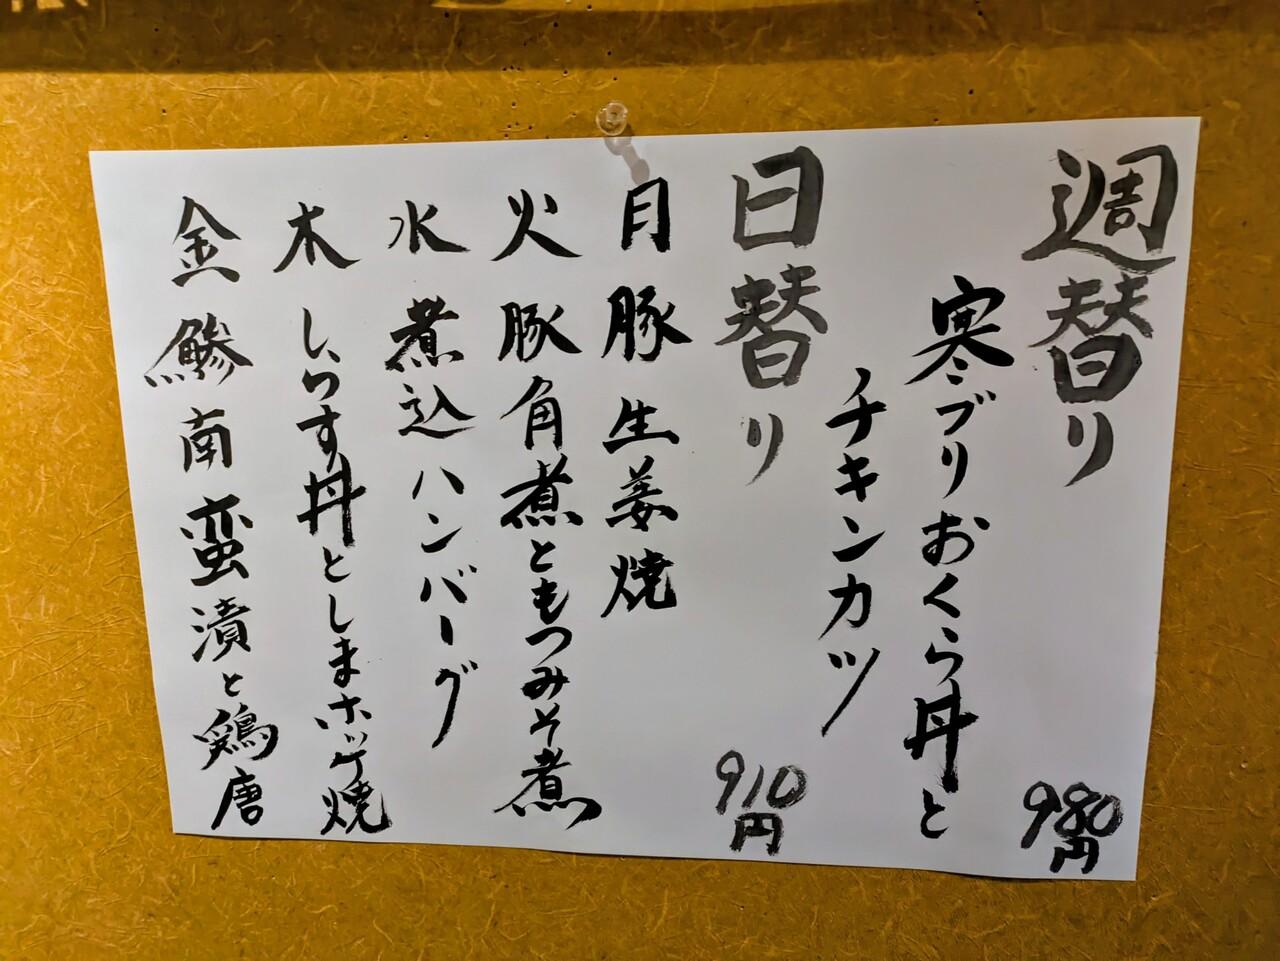 週替り 980円
寒ブリおくら丼と
チキンカツ
日替り 910円
月 豚生姜焼
火 豚角煮ともつみそ煮
水 煮込ハンバーグ
木 しらす丼としまホッケ焼
金 鯵南蛮漬と鶏唐